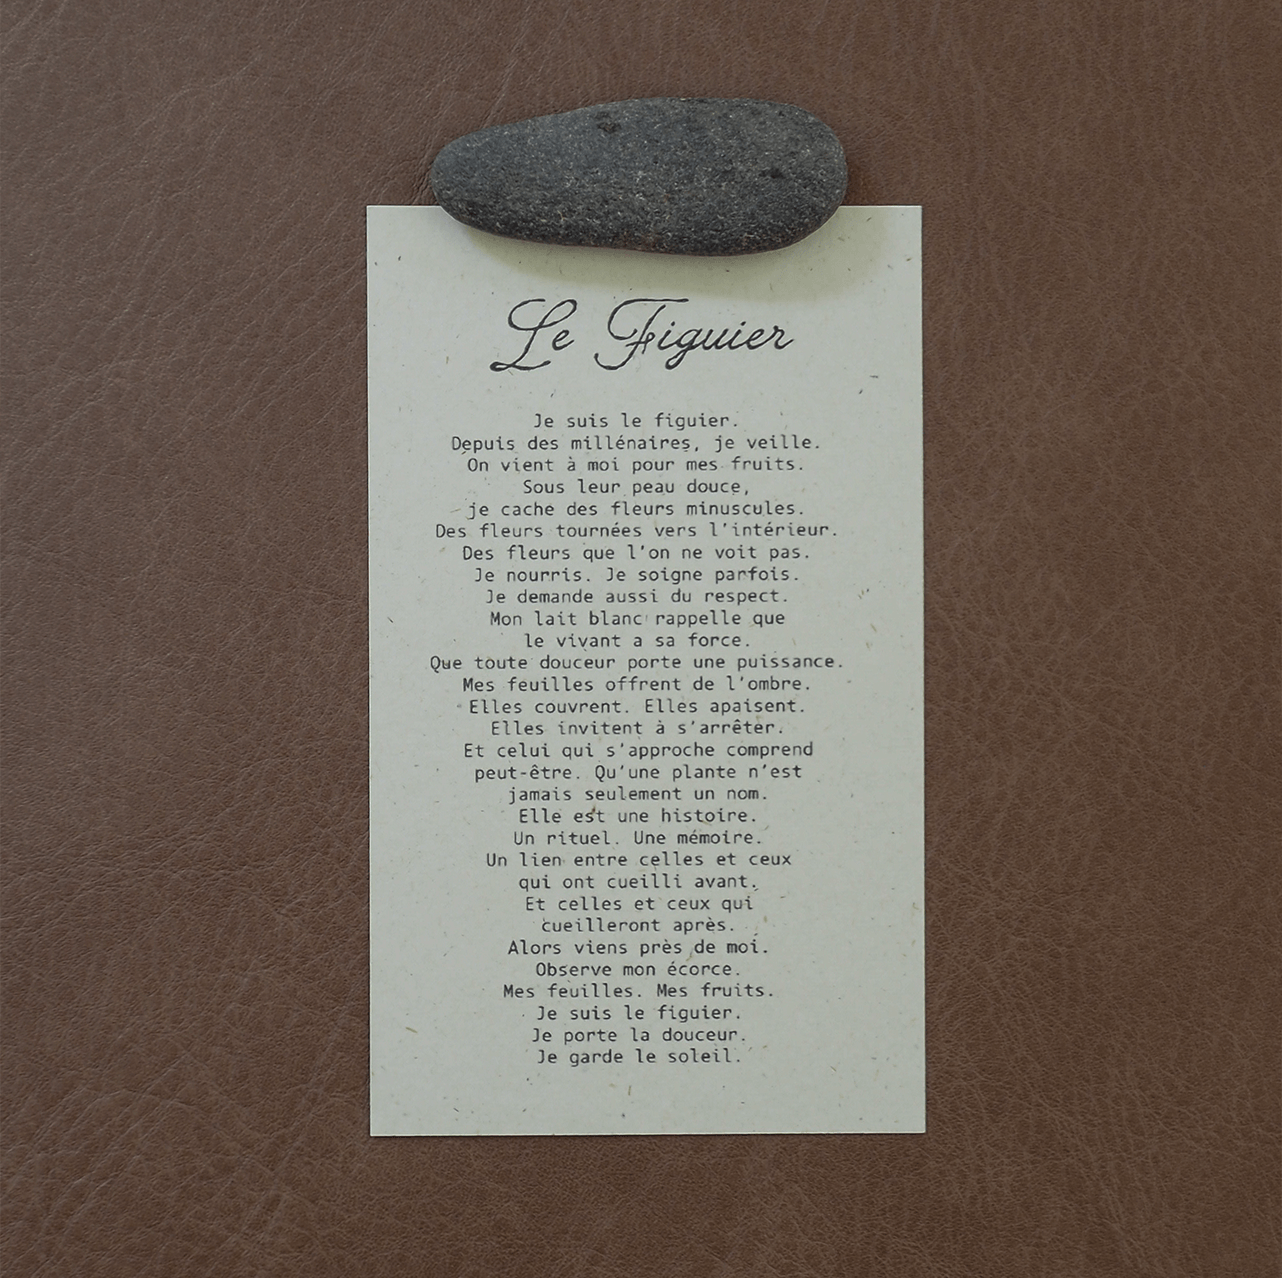 Le Figuier
Je suis le figuier.
Depuis des millénaires, je veille.
On vient à moi pour mes fruits.
Sous leur peau douce,
je cache des fleurs minuscules.
Des fleurs tournées vers l'intérieur.
Des fleurs que l'on ne voit pas.
Je nourris. Je soigne parfois.
Je demande aussi du respect.
Mon lait blanc rappelle que
le vivant a sa force.
Que toute douceur porte une puissance.
Mes feuilles offrent de l'ombre.
Elles couvrent. Elles apaisent.
Elles invitent à s'arrêter.
Et celui qui s'approche comprend
peut-être. Qu'une plante n'est
jamais seulement un nom.
Elle est une histoire.
Un rituel. Une mémoire.
Un lien entre celles et ceux
qui ont cueilli avant.
Et celles et ceux qui
cueilleront après.
Alors viens près de moi.
Observe mon écorce.
Mes feuilles. Mes fruits.
Je suis le figuier.
Je porte la douceur.
Je garde le soleil.